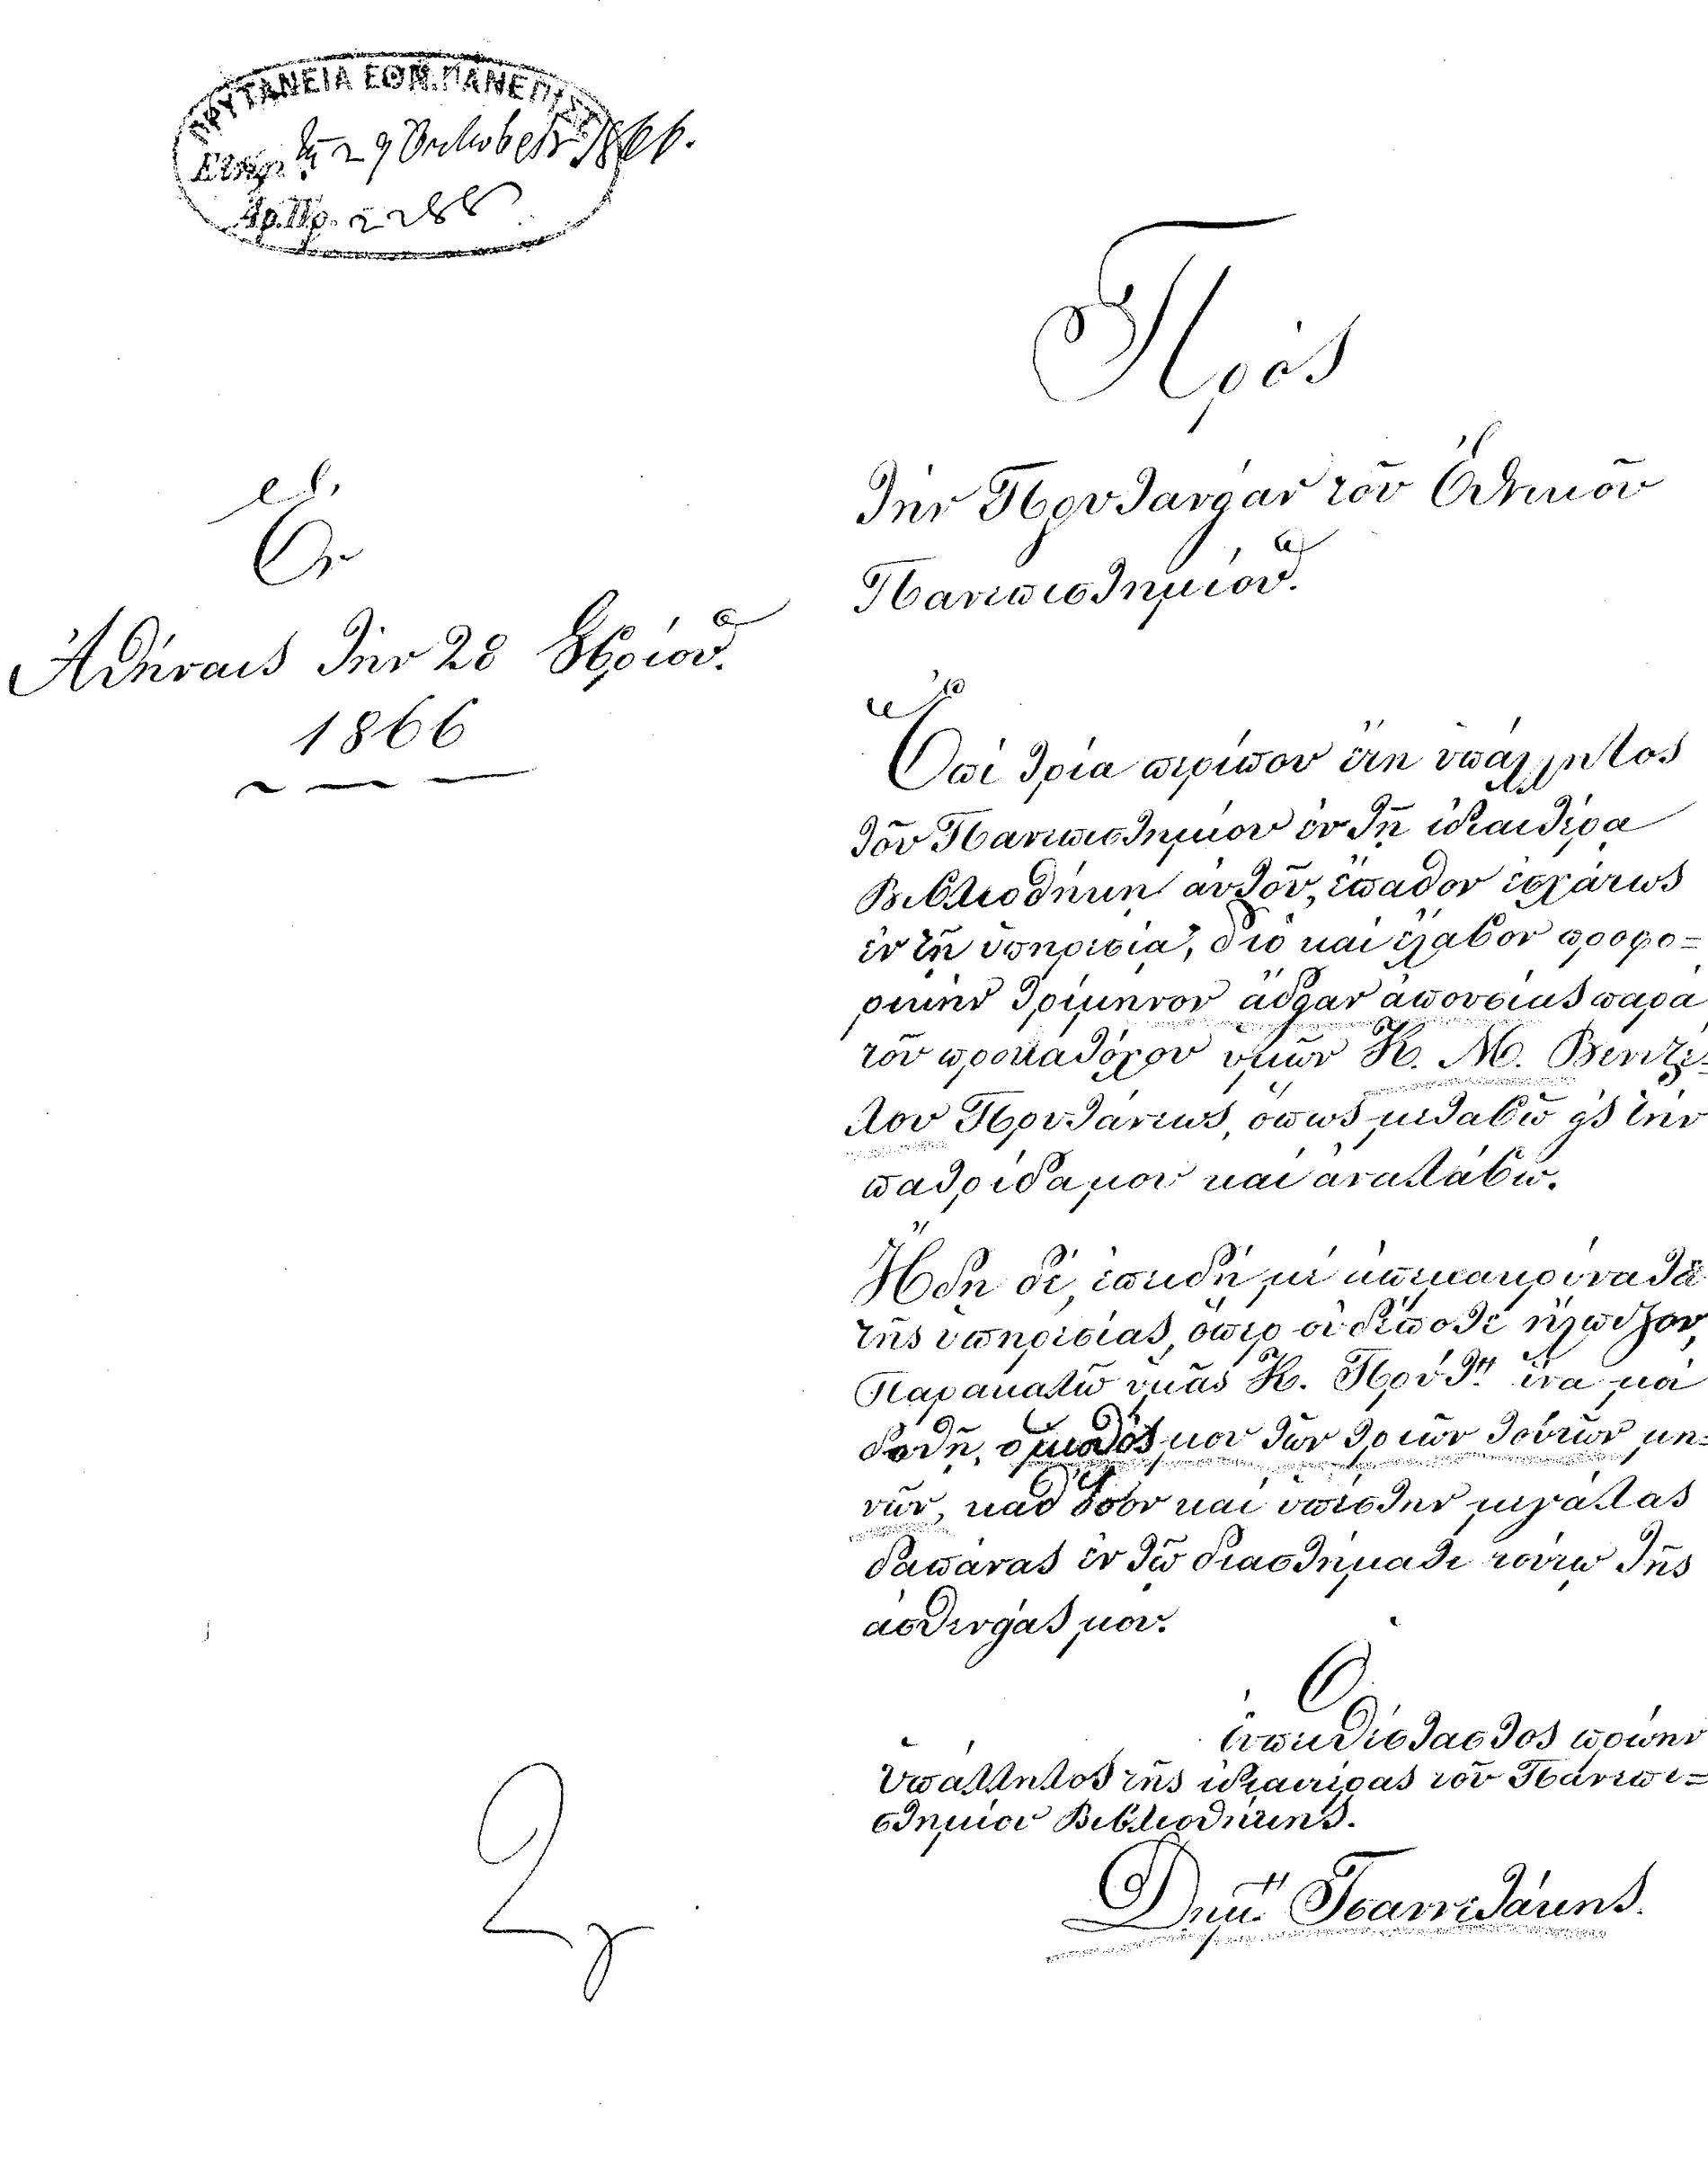 ΠΡΥΤΑΝΕΙΑ ΕΘΝ. ΠΑΝΕΠΙΣΤ.
Εἰσήχ. τῇ 29 Ὀκτωβρίου 1866.
Ἀρ. Πρ. 2288
Πρὸς
τὴν Πρυτανείαν τοῦ Ἐθνικοῦ
Πανεπιστημίου.
Ἐν
Ἀθήναις τὴν 28 8βρίου.
1866
Ἐπὶ τρία περίπου ἔτη ὑπάλληλος
τοῦ Πανεπιστημίου ἐν τῇ ἰδιαιτέρᾳ
Βιβλιοθήκῃ αὐτοῦ, ἔπαθον ἐσχάτως
ἐν τῇ ὑπηρεσίᾳ, διὸ καὶ ἔλαβον προφο=
ρικὴν τρίμηνον ἄδειαν ἀπουσίας παρὰ
τοῦ προκατόχου ὑμῶν Κ. Μ. Βενιζέ=
λου Πρυτάνεως, ὅπως μεταβῶ εἰς τὴν
πατρίδα μου καὶ ἀναλάβω.
Ἤδη δὲ, ἐπειδὴ μὲ ἀπεμακρύνατε
τῆς ὑπηρεσίας, ὅπερ οὐδέποτε ἤλπιζον,
Παρακαλῶ ὑμᾶς Κ. Πρύτ. ἵνα μοὶ
δοθῇ, ὁ μισθός μου τῶν τριῶν τούτων μη=
νῶν, καθ' ὅσον καὶ ὑπέστην μεγάλας
δαπάνας ἐν τῷ διαστήματι τούτῳ τῆς
ἀσθενείας μου.
Ὁ
εὐπειθέστατος πρώην
ὑπάλληλος τῆς ἰδιαιτέρας τοῦ Πανεπι=
στημίου Βιβλιοθήκης.
Δημ. Γιαννιτάκης.